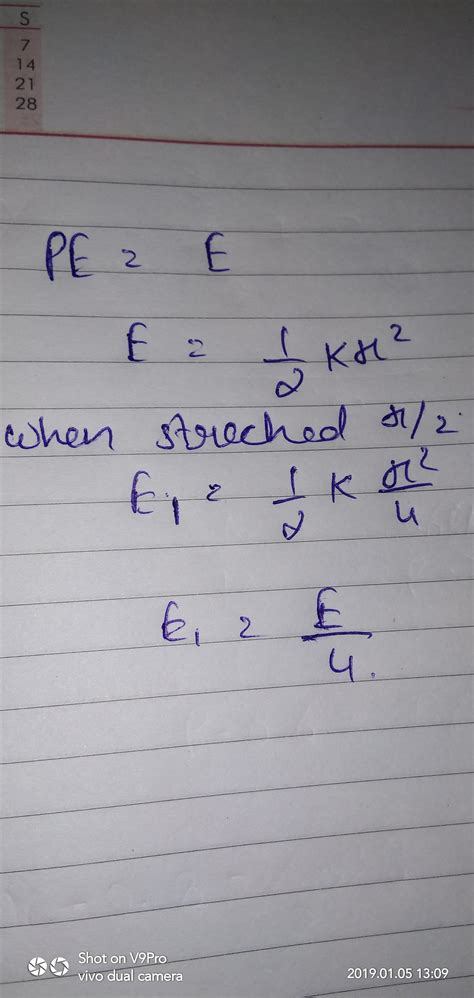 S
7
14
21
28
PE = E
E = 1/2 Kx²
when streched x/2
E₁ = 1/2 K x²/4
E₁ = E/4.
Shot on V9Pro
vivo dual camera
2019.01.05 13:09